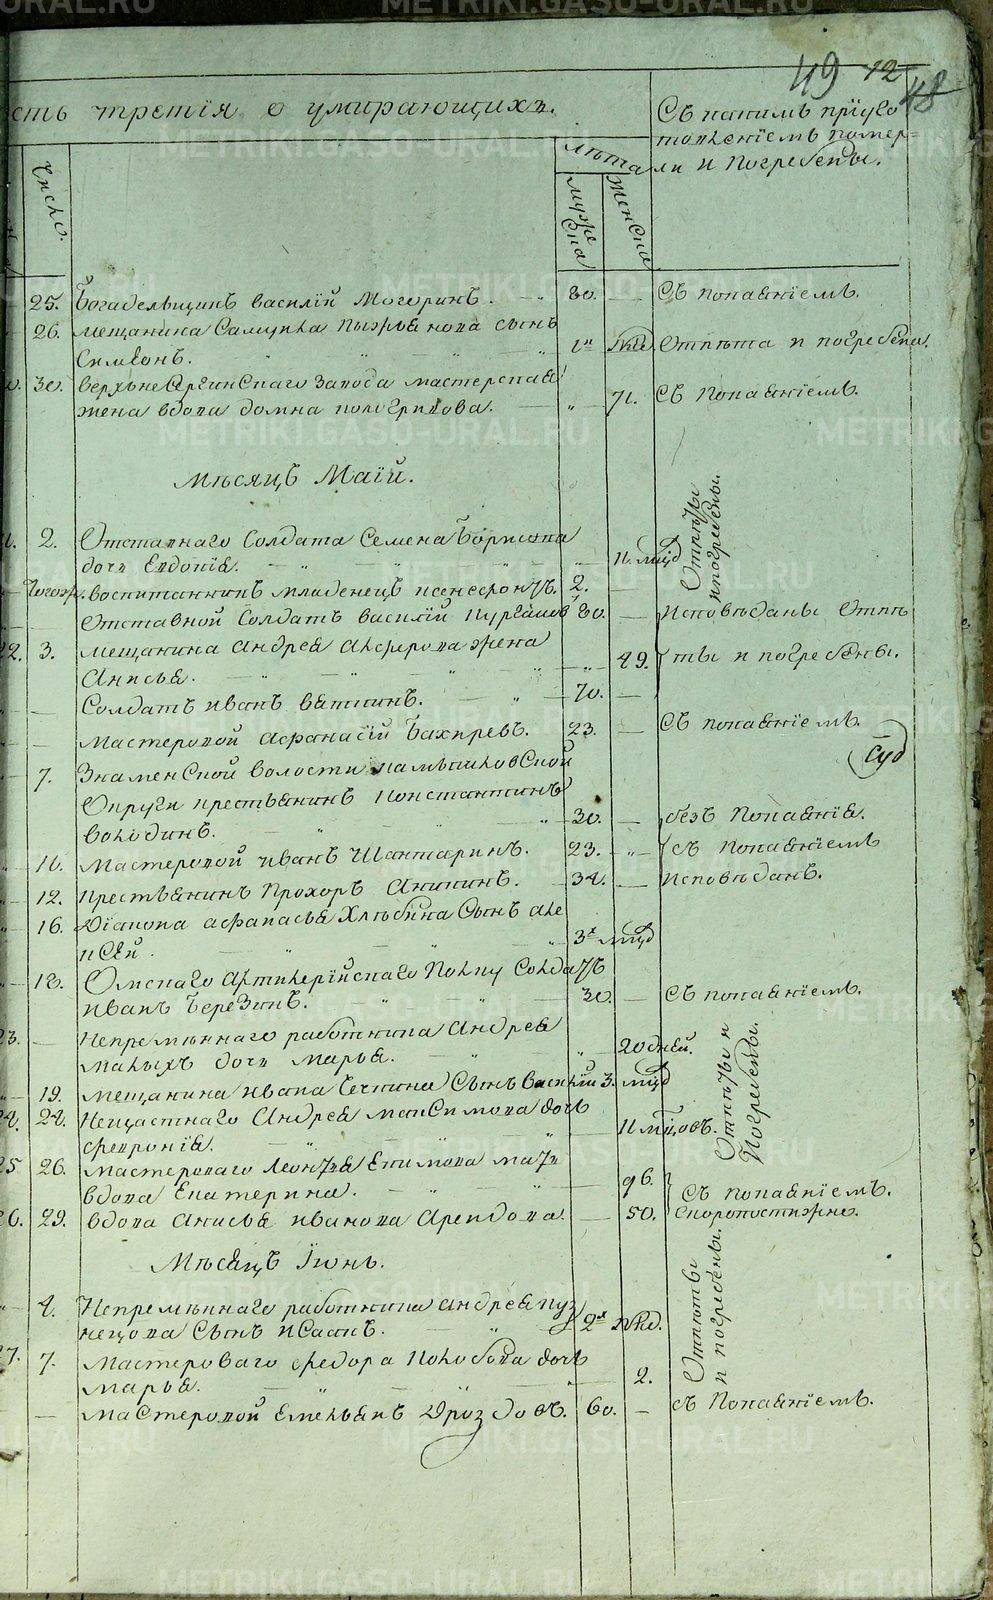 METRIKI.GASO-URAL.RU
49 12 48
сть третія о умирающихъ.
Съ какимъ пріуго
товленіемъ помер=
ли и погребены.
число.
лѣта
муже
ска
женска
25. Богадельщикъ василій Могоринъ. 80. — Съ покаяніемъ.
26. мещанина Самуила сынъ
Симеонъ. Отпѣта и погребена.
30. верхнесергинскаго завода мастерская
жена вдова домна поликарпова. — „ — 71. Съ покаяніемъ.
Мѣсяцъ Маій.
2. Отставнаго Солдата Семена Борисова
дочь Евдокія. 11. мцд
Отпѣты
и погребены.
воспитанникъ младенецъ ксенефонтъ. 2. —
Отставной Солдатъ василій Кургановъ 80. — Исповѣданы Отпѣ
22. 3. мещанина Андрея Алферова жена
Анисья. — „ — 49. ты и погребены.
Солдатъ иванъ вяткинъ. 70. —
мастеровой афанасій Бахиревъ. 23. — Съ покаяніемъ.
Суд
7. Знаменской волости камышловской
Округи крестьянинъ Константинъ
володинъ. 30. — безъ Покаянія.
10. Мастеровой иванъ Шантаринъ. 23. — „ — съ покаяніемъ
12. крестьянинъ Прохоръ Аникинъ. 34. — Исповѣданъ.
16. Діакона афанасья Хлѣбина Сынъ але
ксѣй. 3х мцд
18. Омскаго Артилерійскаго Полку Солдатъ
иванъ Березинъ. 30. — Съ покаяніемъ.
23. — Непремѣннаго работника Андрея
малыхъ дочь марья. 20 дней.
Отпѣты и
Погребены.
19. мещанина ивана Чечкина Сынъ василій 3. мцд
24. 24. Нещастнаго Андрея максимова дочь
февронія. — 11 мцовъ.
25 26. мастероваго Леонтья Екимова мать
вдова Екатерина. — 96. Съ покаяніемъ.
26. 29. вдова анисья иванова Арендова. — 50. Скоропостижно.
Мѣсяцъ Іюнь.
4. Непремѣннаго работника андрея куз
нецова Сынъ Исаакъ. 2х нед.
Отпѣты
и погребены.
27. 7. мастероваго федора Колобова дочь
марья. — 2.
— мастеровой Емельянъ Дроздовъ. 60. — съ Покаяніемъ.